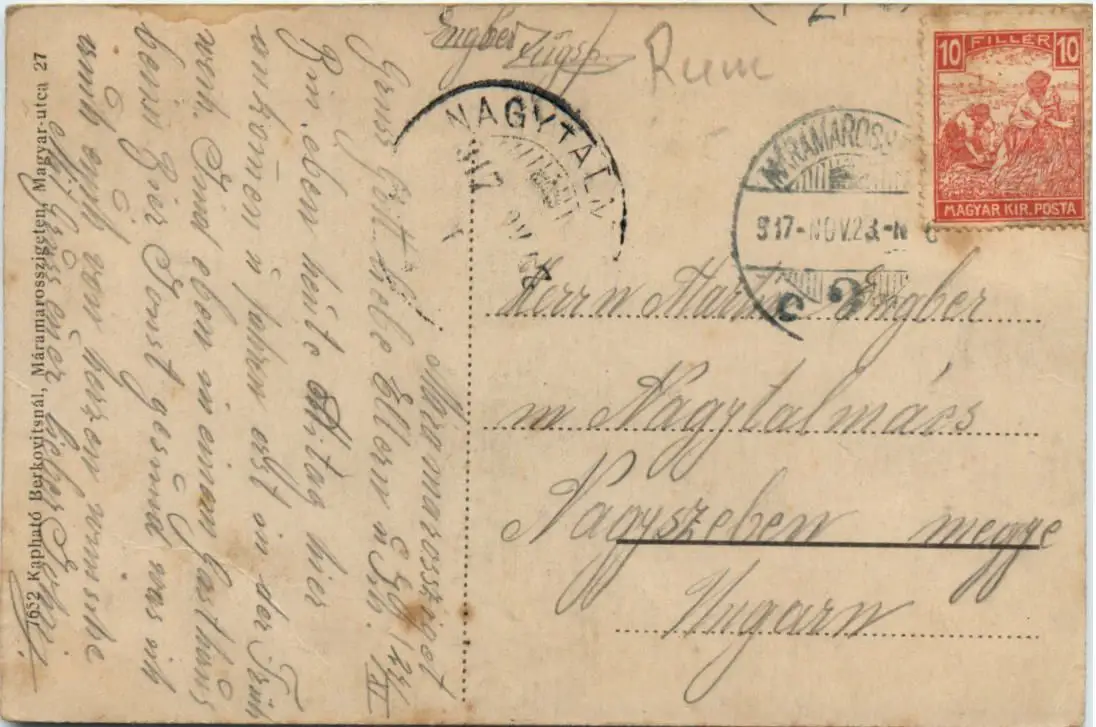 Engber Zugsf.
Rum
10 FILLÉR 10
MAGYAR KIR. POSTA
NAGYTALM
917
MÁRAMAROSSZ
917-NOV.23.-N 6
c
Herrn Martin Engber
in Nagytalmács
Nagyszeben megye
Ungarn
Máramarosszigot
23/XI
Grus Gott liebe Eltern u.
Bin eben heute Mitag hier
ankomen u faren erst in der Früh
wech. Sind eben in einem Gasthaus
beim Bier Sonst gesund was ich
auch euch von herzen wünsche
Es Grüs euer lieber Sohn
1652 Kapható Berkovitsnál, Máramarosszigeten, Magyar-utca 27